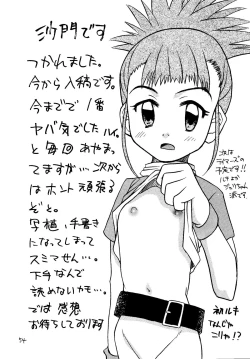 沙門です
つかれました。
今から入稿です。
今までで1番
ヤバ気でしたルイ。
と毎回あやまっ
てますが…次から
はホント頑張る
ぞと。
写植、手書き
になってしまって
スミマせん…。
下手なんで
読めないカモ…。
では感想
お待ちしております
次は
テイマーズの
予定です!!
ルキよか
ジュリちゃん
派です
初ルキ
なんじゃ
こりゃ!?
54